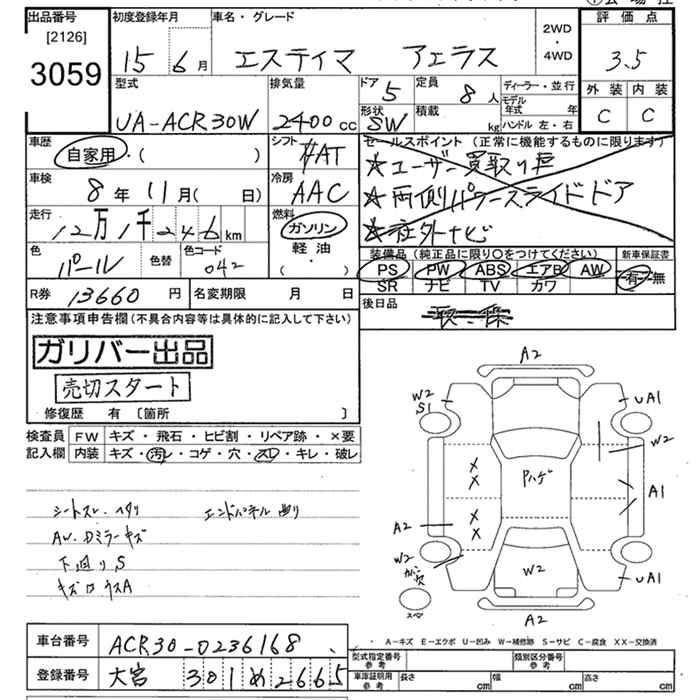 出品番号 初度登録年月 車名・グレード 2WD・4WD 評価点
[2126]
3059
15年 6月 エスティマ アエラス 3.5
型式 排気量 ドア 定員 ディーラー・並行 外装 内装
UA-ACR30W 2400cc 5 8人 モデル年式 年 C C
形状 積載 ハンドル 左・右
SW kg
車歴 シフト セールスポイント (正常に機能するものに限ります)
自家用・( ) AT ☆ユーザー買取り車
車検 冷房 ☆両側パワースライドドア
8年 11月( 日) AAC ☆社外ナビ
走行 燃料
12万1千246km ガソリン 軽油 ( ・ )
色 色替 色コード 装備品 (純正品に限り○をつけてください) 新車保証書
パール 042 PS PW ABS エアB AW 有・無
SR ナビ TV カワ
R券 13660円 名変期限 月 日 後日品
注意事項申告欄(不具合内容等は具体的に記入して下さい)
ガリバー出品
売切スタート
修復歴 有 〔箇所 〕
検査員 FW キズ・飛石・ヒビ割・リペア跡・×要
記入欄 内装 キズ・汚レ・コゲ・穴・スレ・キレ・破レ
シートスレ・ヘタリ エンドパネル曲り
AW・Dミラーキズ
下回りS
A2
W2 S1
UA1
W2
A1
Pハゲ
X X
X X
A2
W2
穴
W2
UA1
スペア
A2
・ A−キズ E−エクボ U−凹み W−補修跡 S−サビ C−腐食 XX−交換済
車台番号 ACR30-0236168
登録番号 大宮 301 め 2665
型式指定番号 参考 類別区分番号 参考
車庫証明用 参考 長さ cm 幅 cm 高さ cm